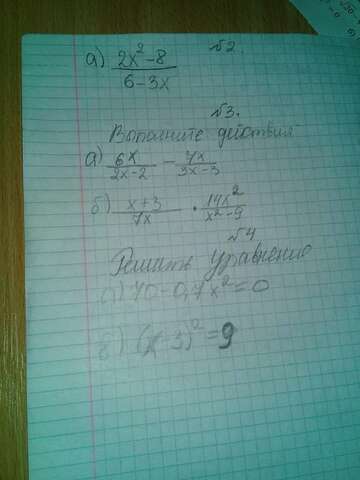 №2.
а) 2x²-8 / 6-3x
№3.
Выполните действия
а) 6x / 2x-2 - 7x / 3x-3
б) x+3 / 7x · 14x² / x²-9
№4
Решить уравнение
а) 70-0,7x²=0
б) (x-3)²=9